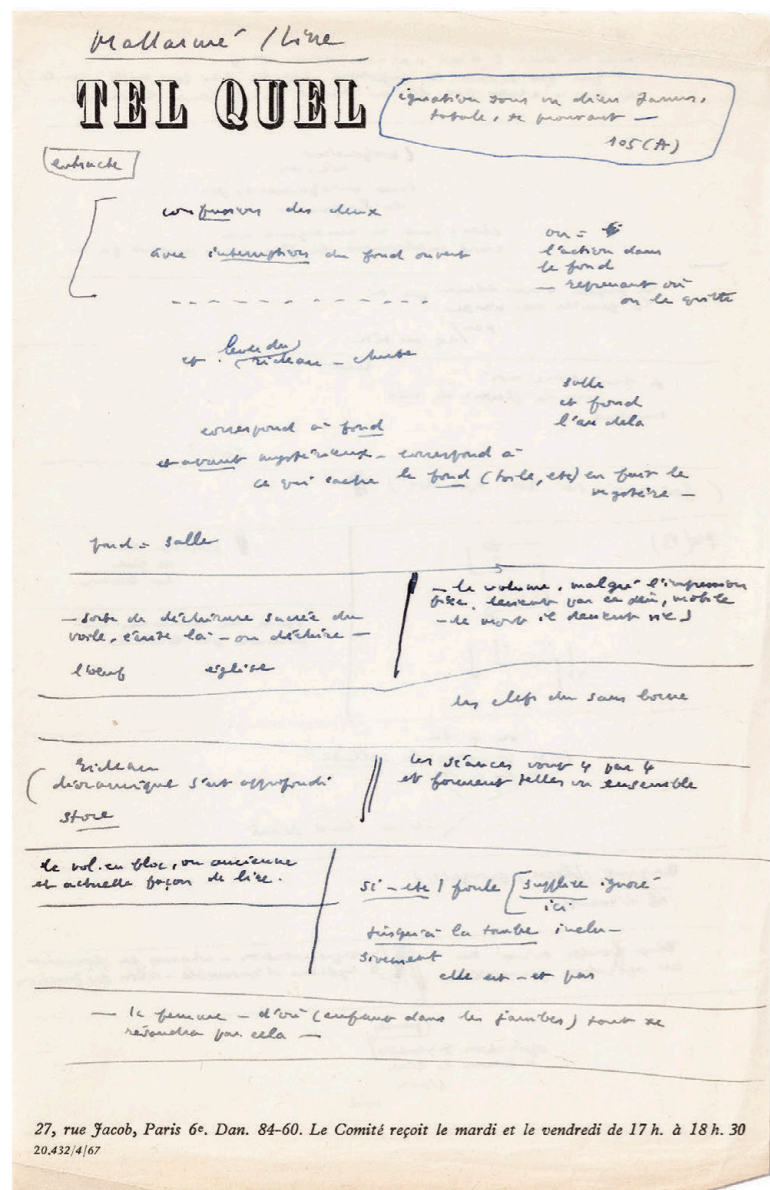 Mallarmé / Livre
TEL QUEL
équation sous un dieu Janus,
totale, se prouvant —
105 (A)
entracte
confusion des deux
avec interruption du fond ouvert
ou =
l'action dans
le fond
— reprenant où
on la quitte
et lever du
rideau — chute
salle
et fond
l'au delà
correspond à fond
et avant mystérieux — correspond à
ce qui cache le fond (toile, etc) en fait le
mystère —
fond = salle
— le volume, malgré l'impression
fixe, devient par ce jeu, mobile
— de mort il devient vie
— sorte de déchirure sacrée du
voile, écrite là — ou déchire —
l'oeuf église
les clefs du sans borne
rideau
dioramique s'est approfondi
store
les séances vont 4 par 4
et forment telles un ensemble
le vol. en bloc, ou ancienne
et actuelle façon de lire.
si — etc / foule supplice ignoré
ici
jusqu'à la tombe inclu-
sivement
elle est — et pas
— la femme — d'où (enfant dans les jambes) tout se
résoudra par cela —
27, rue Jacob, Paris 6e. Dan. 84-60. Le Comité reçoit le mardi et le vendredi de 17 h. à 18 h. 30
20.432/4/67